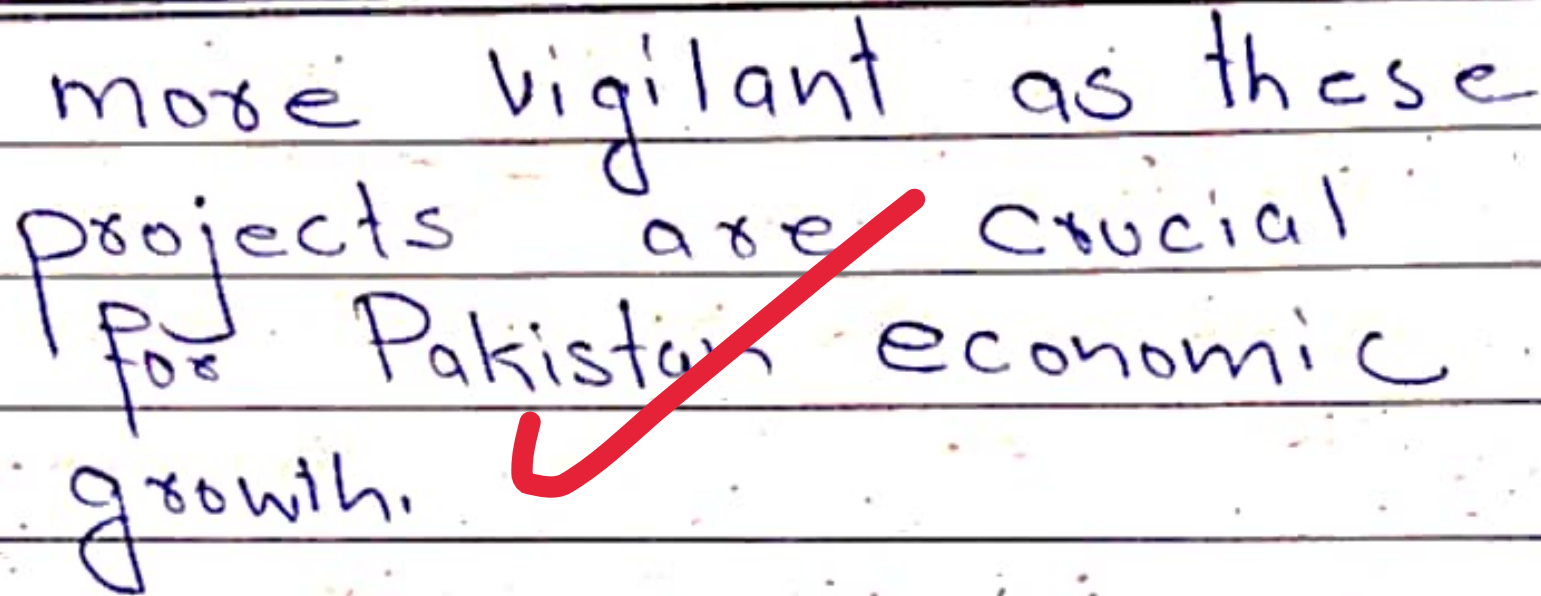 more vigilant as these
projects are crucial
for Pakistan economic
growth.